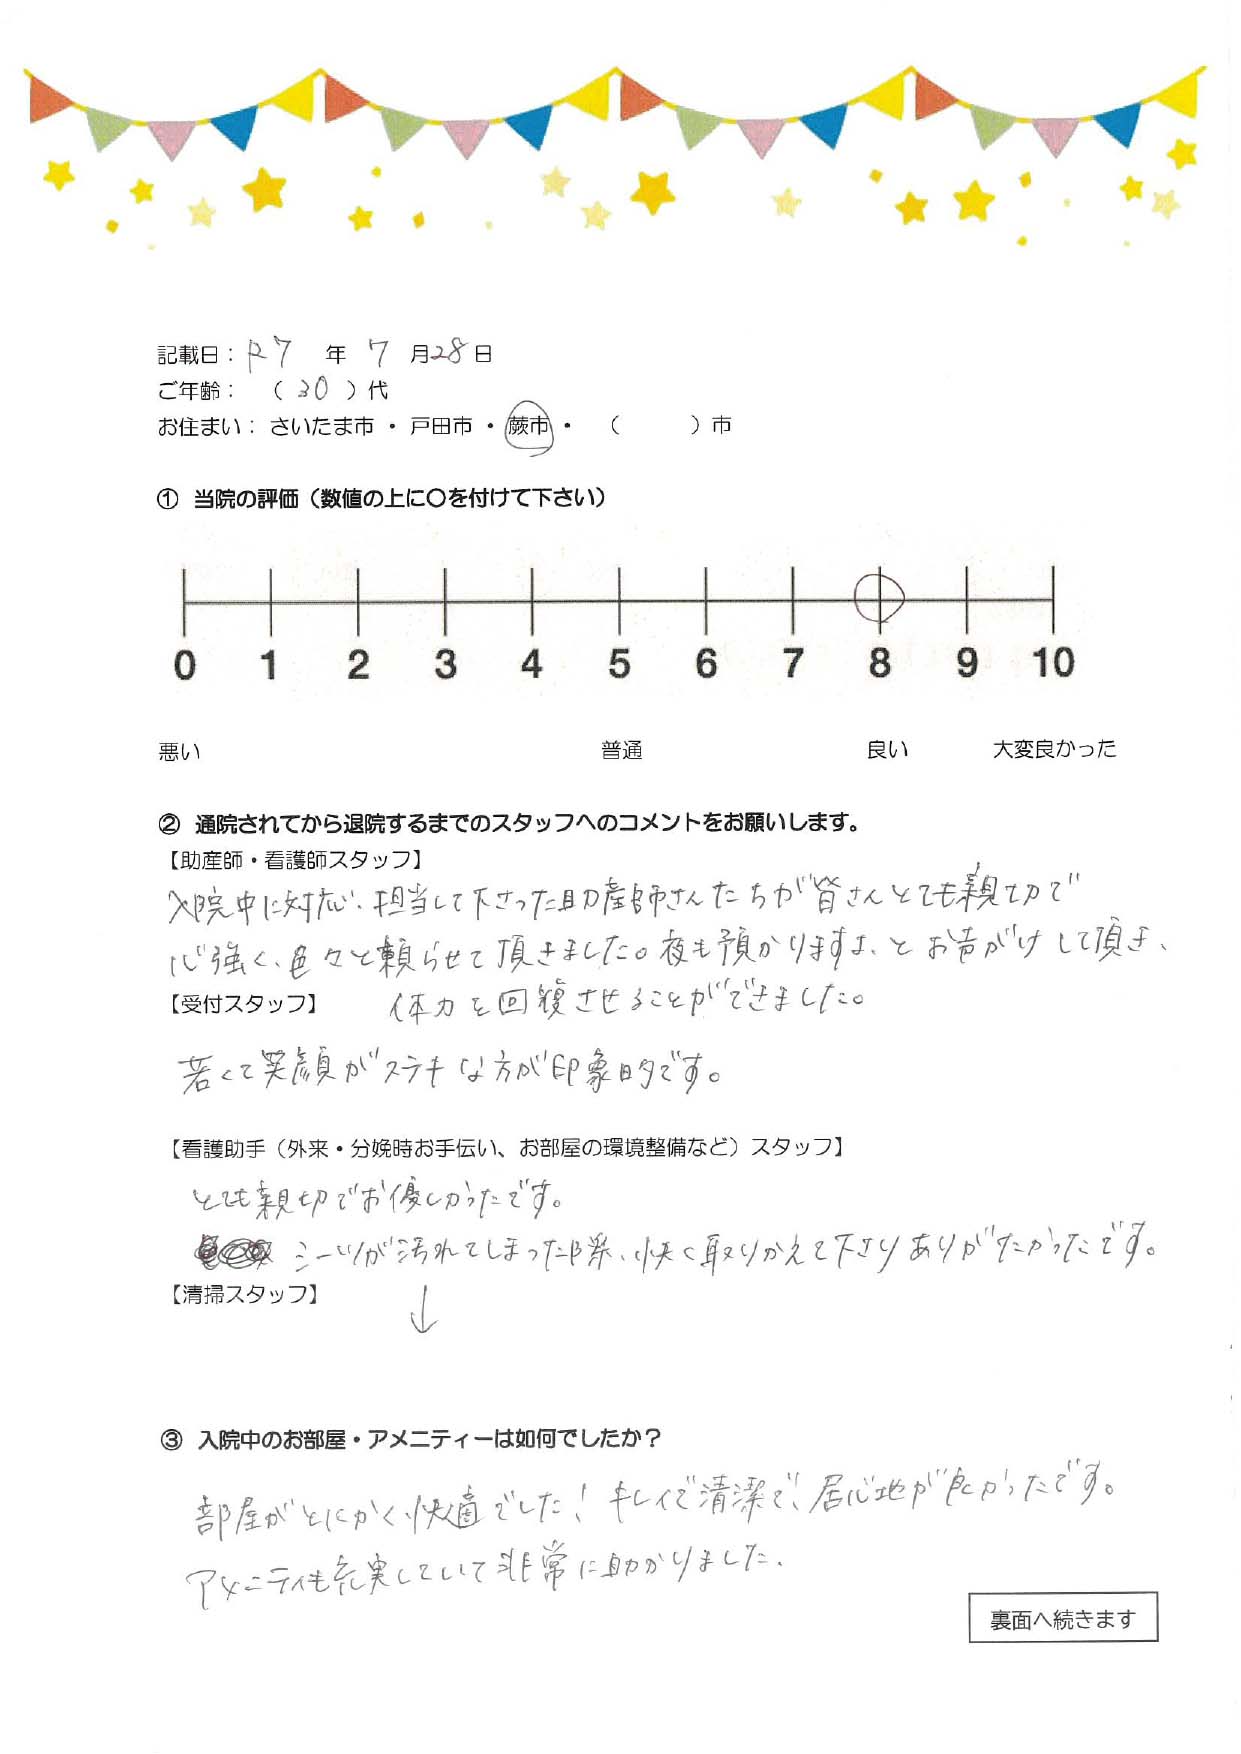 記載日: R7 年 7 月 28 日
ご年齢: ( 30 ) 代
お住まい: さいたま市 ・ 戸田市 ・ 蕨市 ・ (      ) 市
① 当院の評価(数値の上に〇を付けて下さい)
0 1 2 3 4 5 6 7 8 9 10
悪い 普通 良い 大変良かった
② 通院されてから退院するまでのスタッフへのコメントをお願いします。
【助産師・看護師スタッフ】
入院中に対応、担当して下さった助産師さんたちが皆さんとても親切で
心強く、色々と頼らせて頂きました。夜も預かりますよ、とお声がけして頂き、
体力を回復させることができました。
【受付スタッフ】
若くて笑顔がステキな方が印象的です。
【看護助手(外来・分娩時お手伝い、お部屋の環境整備など)スタッフ】
とても親切でお優しかったです。
シーツが汚れてしまった際、快く取りかえて下さりありがたかったです。
【清掃スタッフ】
↓
③ 入院中のお部屋・アメニティーは如何でしたか?
部屋がとにかく快適でした!キレイで清潔で、居心地が良かったです。
アメニティも充実していて非常に助かりました。
裏面へ続きます